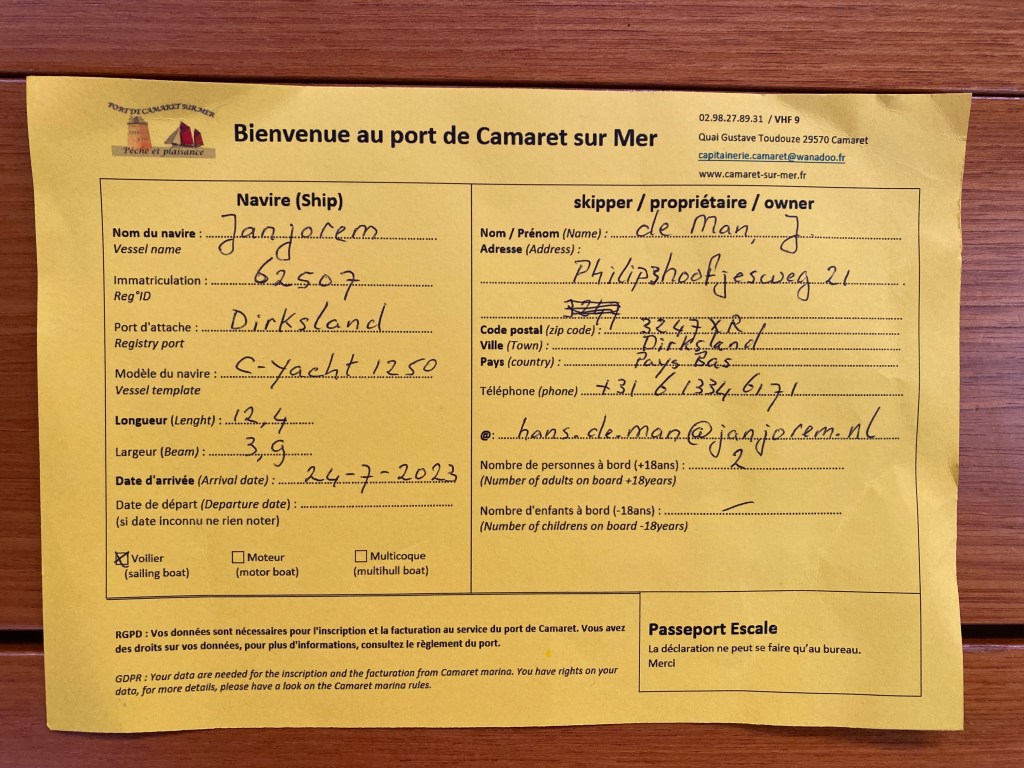 PORT DE CAMARET SUR MER
Pêche et plaisance
Bienvenue au port de Camaret sur Mer
02.98.27.89.31 / VHF 9
Quai Gustave Toudouze 29570 Camaret
capitainerie.camaret@wanadoo.fr
www.camaret-sur-mer.fr
Navire (Ship)
Nom du navire : Janjorem
Vessel name
Immatriculation : 62507
Reg°ID
Port d'attache : Dirksland
Registry port
Modèle du navire : C-Yacht 1250
Vessel template
Longueur (Lenght) : 12,4
Largeur (Beam) : 3,9
Date d'arrivée (Arrival date) : 24-7-2023
Date de départ (Departure date) :
(si date inconnu ne rien noter)
Voilier Moteur Multicoque
(sailing boat) (motor boat) (multihull boat)
skipper / propriétaire / owner
Nom / Prénom (Name) : de Man, J.
Adresse (Address) :
Philipshoofjesweg 21
3247
Code postal (zip code) : 3247 XR
Ville (Town) : Dirksland
Pays (country) : Pays Bas
Téléphone (phone) : +31 6 1334 6171
@: hans.de.man@janjorem.nl
Nombre de personnes à bord (+18ans) : 2
(Number of adults on board +18years)
Nombre d'enfants à bord (-18ans) : —
(Number of childrens on board -18years)
RGPD : Vos données sont nécessaires pour l'inscription et la facturation au service du port de Camaret. Vous avez
des droits sur vos données, pour plus d'informations, consultez le règlement du port.
GDPR : Your data are needed for the inscription and the facturation from Camaret marina. You have rights on your
data, for more details, please have a look on the Camaret marina rules.
Passeport Escale
La déclaration ne peut se faire qu'au bureau.
Merci